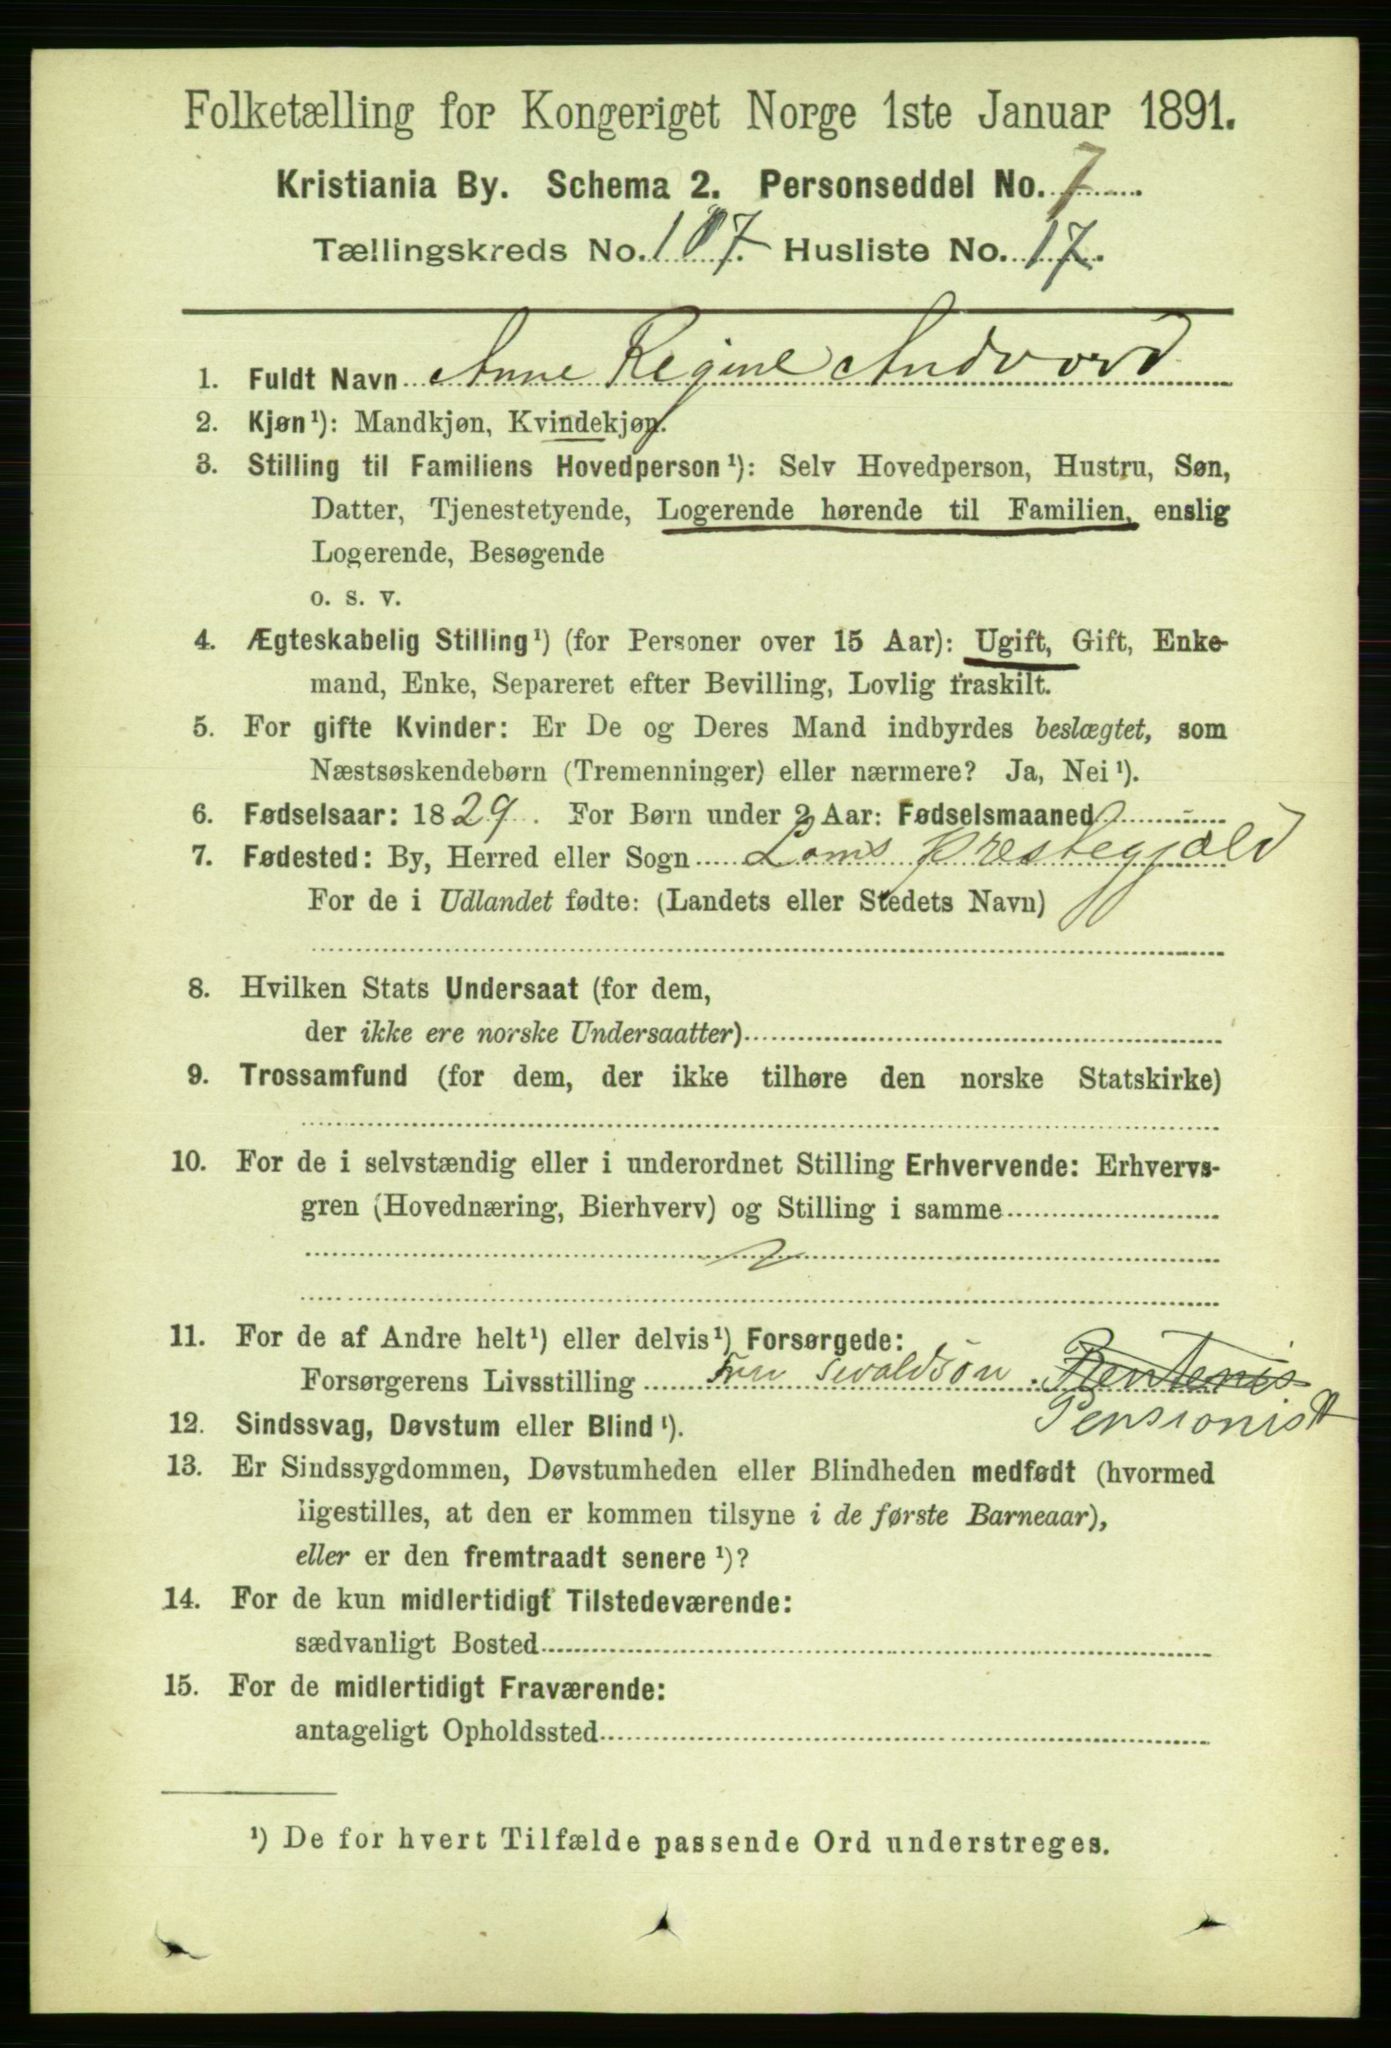 Folketælling for Kongeriget Norge 1ste Januar 1891.
Kristiania By. Schema 2. Personseddel No. 7
Tællingskreds No. 107. Husliste No. 17.
1. Fuldt Navn Anne Regine Andvord
2. Kjøn¹): Mandkjøn, Kvindekjøn.
3. Stilling til Familiens Hovedperson¹): Selv Hovedperson, Hustru, Søn,
Datter, Tjenestetyende, Logerende hørende til Familien, enslig
Logerende, Besøgende
o. s. v.
4. Ægteskabelig Stilling¹) (for Personer over 15 Aar): Ugift, Gift, Enke-
mand, Enke, Separeret efter Bevilling, Lovlig fraskilt.
5. For gifte Kvinder: Er De og Deres Mand indbyrdes beslægtet, som
Næstsøskendebørn (Tremenninger) eller nærmere? Ja, Nei¹).
6. Fødselsaar: 1829. For Børn under 2 Aar: Fødselsmaaned
7. Fødested: By, Herred eller Sogn Loms Prestegjæld
For de i Udlandet fødte: (Landets eller Stedets Navn)
8. Hvilken Stats Undersaat (for dem,
der ikke ere norske Undersaatter)
9. Trossamfund (for dem, der ikke tilhøre den norske Statskirke)
10. For de i selvstændig eller i underordnet Stilling Erhvervende: Erhvervs-
gren (Hovednæring, Bierhverv) og Stilling i samme
11. For de af Andre helt¹) eller delvis¹) Forsørgede:
Forsørgerens Livsstilling
Pensionist
12. Sindssvag, Døvstum eller Blind¹).
13. Er Sindssygdommen, Døvstumheden eller Blindheden medfødt (hvormed
ligestilles, at den er kommen tilsyne i de første Barneaar),
eller er den fremtraadt senere¹)?
14. For de kun midlertidigt Tilstedeværende:
sædvanligt Bosted
15. For de midlertidigt Fraværende:
antageligt Opholdssted
¹) De for hvert Tilfælde passende Ord understreges.